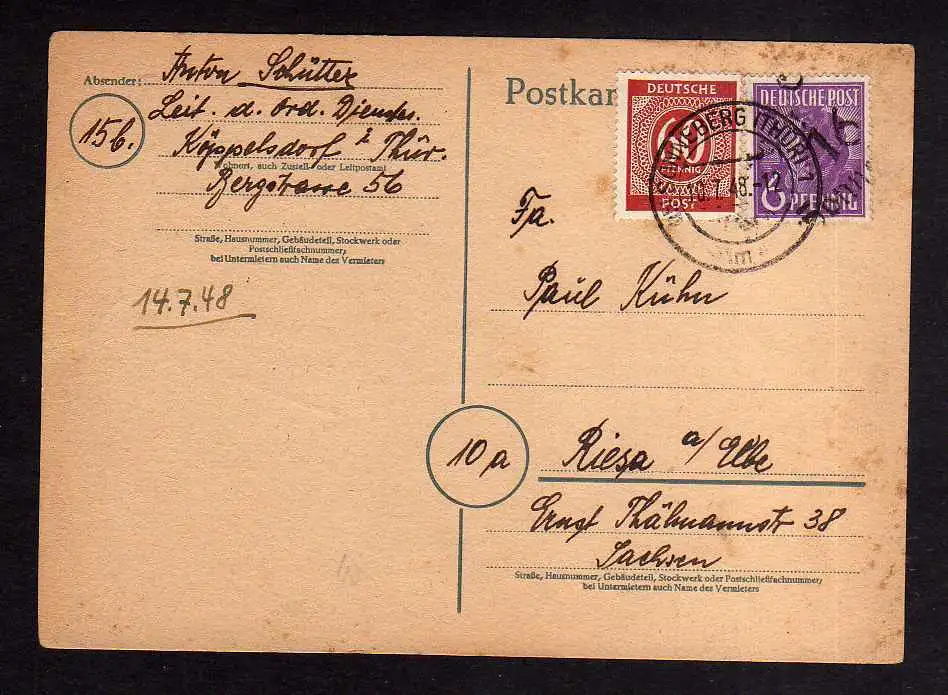 Absender: Anton Schütter
Leit. d. Ord. Dienstes.
15b.
Köppelsdorf i Thür.
Wohnort, auch Zustell- oder Leitpostamt
Bergstrasse 56
Straße, Hausnummer, Gebäudeteil, Stockwerk oder
Postschließfachnummer,
bei Untermietern auch Name des Vermieters
14.7.48
Postkar
DEUTSCHE
PFENNIG
POST
DEUTSCHE POST
6 PFENNIG
SONNEBERG (THÜR) 1
7.48.-12
16
Fa.
Paul Kühn
10a
Riesa a/Elbe
Ernst Thälmannstr 38
Sachsen
Straße, Hausnummer, Gebäudeteil, Stockwerk oder Postschließfachnummer,
bei Untermietern auch Name des Vermieters